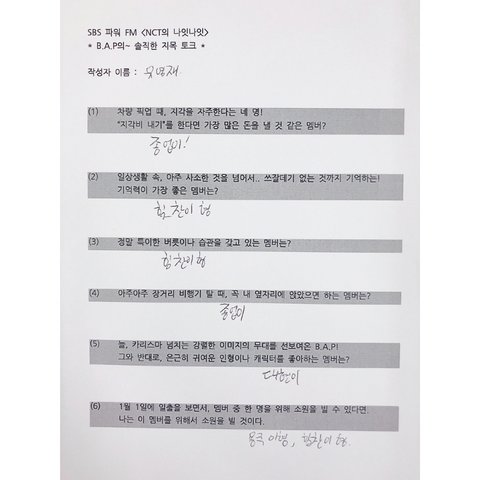 SBS 파워 FM <NCT의 나잇나잇>
* B.A.P의~ 솔직한 지목 토크 *
작성자 이름 : 유영재
(1) 차량 픽업 때, 지각을 자주한다는 네 명!
"지각비 내기"를 한다면 가장 많은 돈을 낼 것 같은 멤버?
종업이!
(2) 일상생활 속, 아주 사소한 것을 넘어서.. 쓰잘데기 없는 것까지 기억하는!
기억력이 가장 좋은 멤버는?
힘찬이 형
(3) 정말 특이한 버릇이나 습관을 갖고 있는 멤버는?
힘찬이형
(4) 아주아주 장거리 비행기 탈 때, 꼭 내 옆자리에 앉았으면 하는 멤버는?
종업이
(5) 늘, 카리스마 넘치는 강렬한 이미지의 무대를 선보여온 B.A.P!
그와 반대로, 은근히 귀여운 인형이나 캐릭터를 좋아하는 멤버는?
대현이
(6) 1월 1일에 일출을 보면서, 멤버 중 한 명을 위해 소원을 빌 수 있다면.
나는 이 멤버를 위해서 소원을 빌 것이다.
용국이형, 힘찬이 형